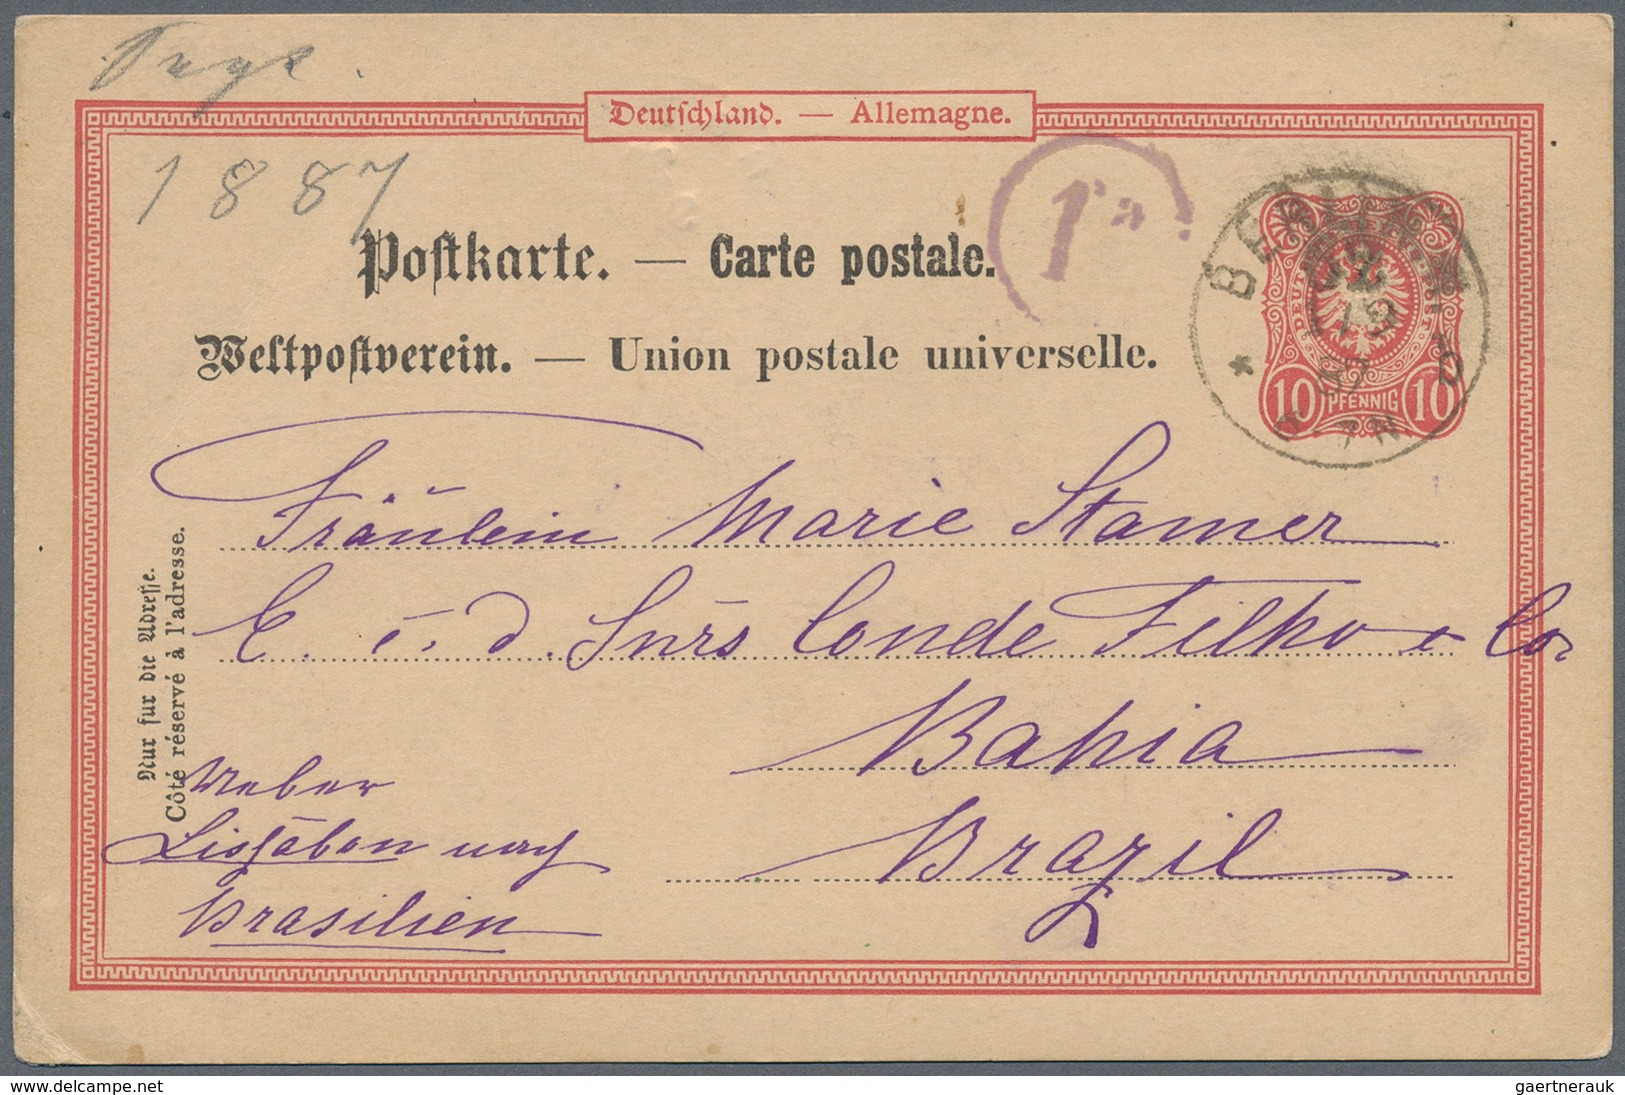 1887
Deutschland. — Allemagne.
1a
Postkarte. — Carte postale.
Weltpostverein. — Union postale universelle.
BERLIN
12
87
6-7N
DEUTSCHE REICHSPOST
10 PFENNIG 10
Nur für die Adresse.
Côté réservé à l'adresse.
Fräulein Marie Stamer
E. c. d. Snrs Conde Filho & Co
Bahia
Brazil
Ueber
Lissabon nach
Brasilien
delcampe.net
gaertnerauk